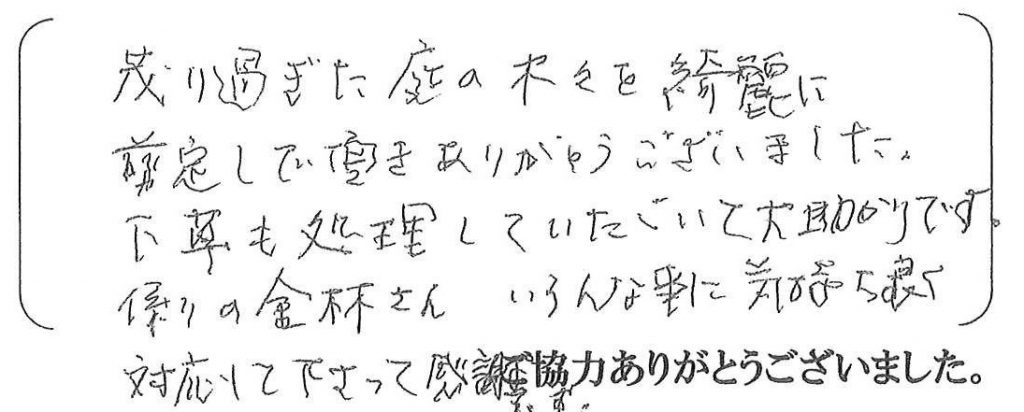 茂り過ぎた庭の木々を綺麗に
剪定して頂きありがとうございました。
下草も処理していただいて大助かりです。
係りの金林さん いろんな事に気持ち良く
対応して下さって感謝です。
ご協力ありがとうございました。